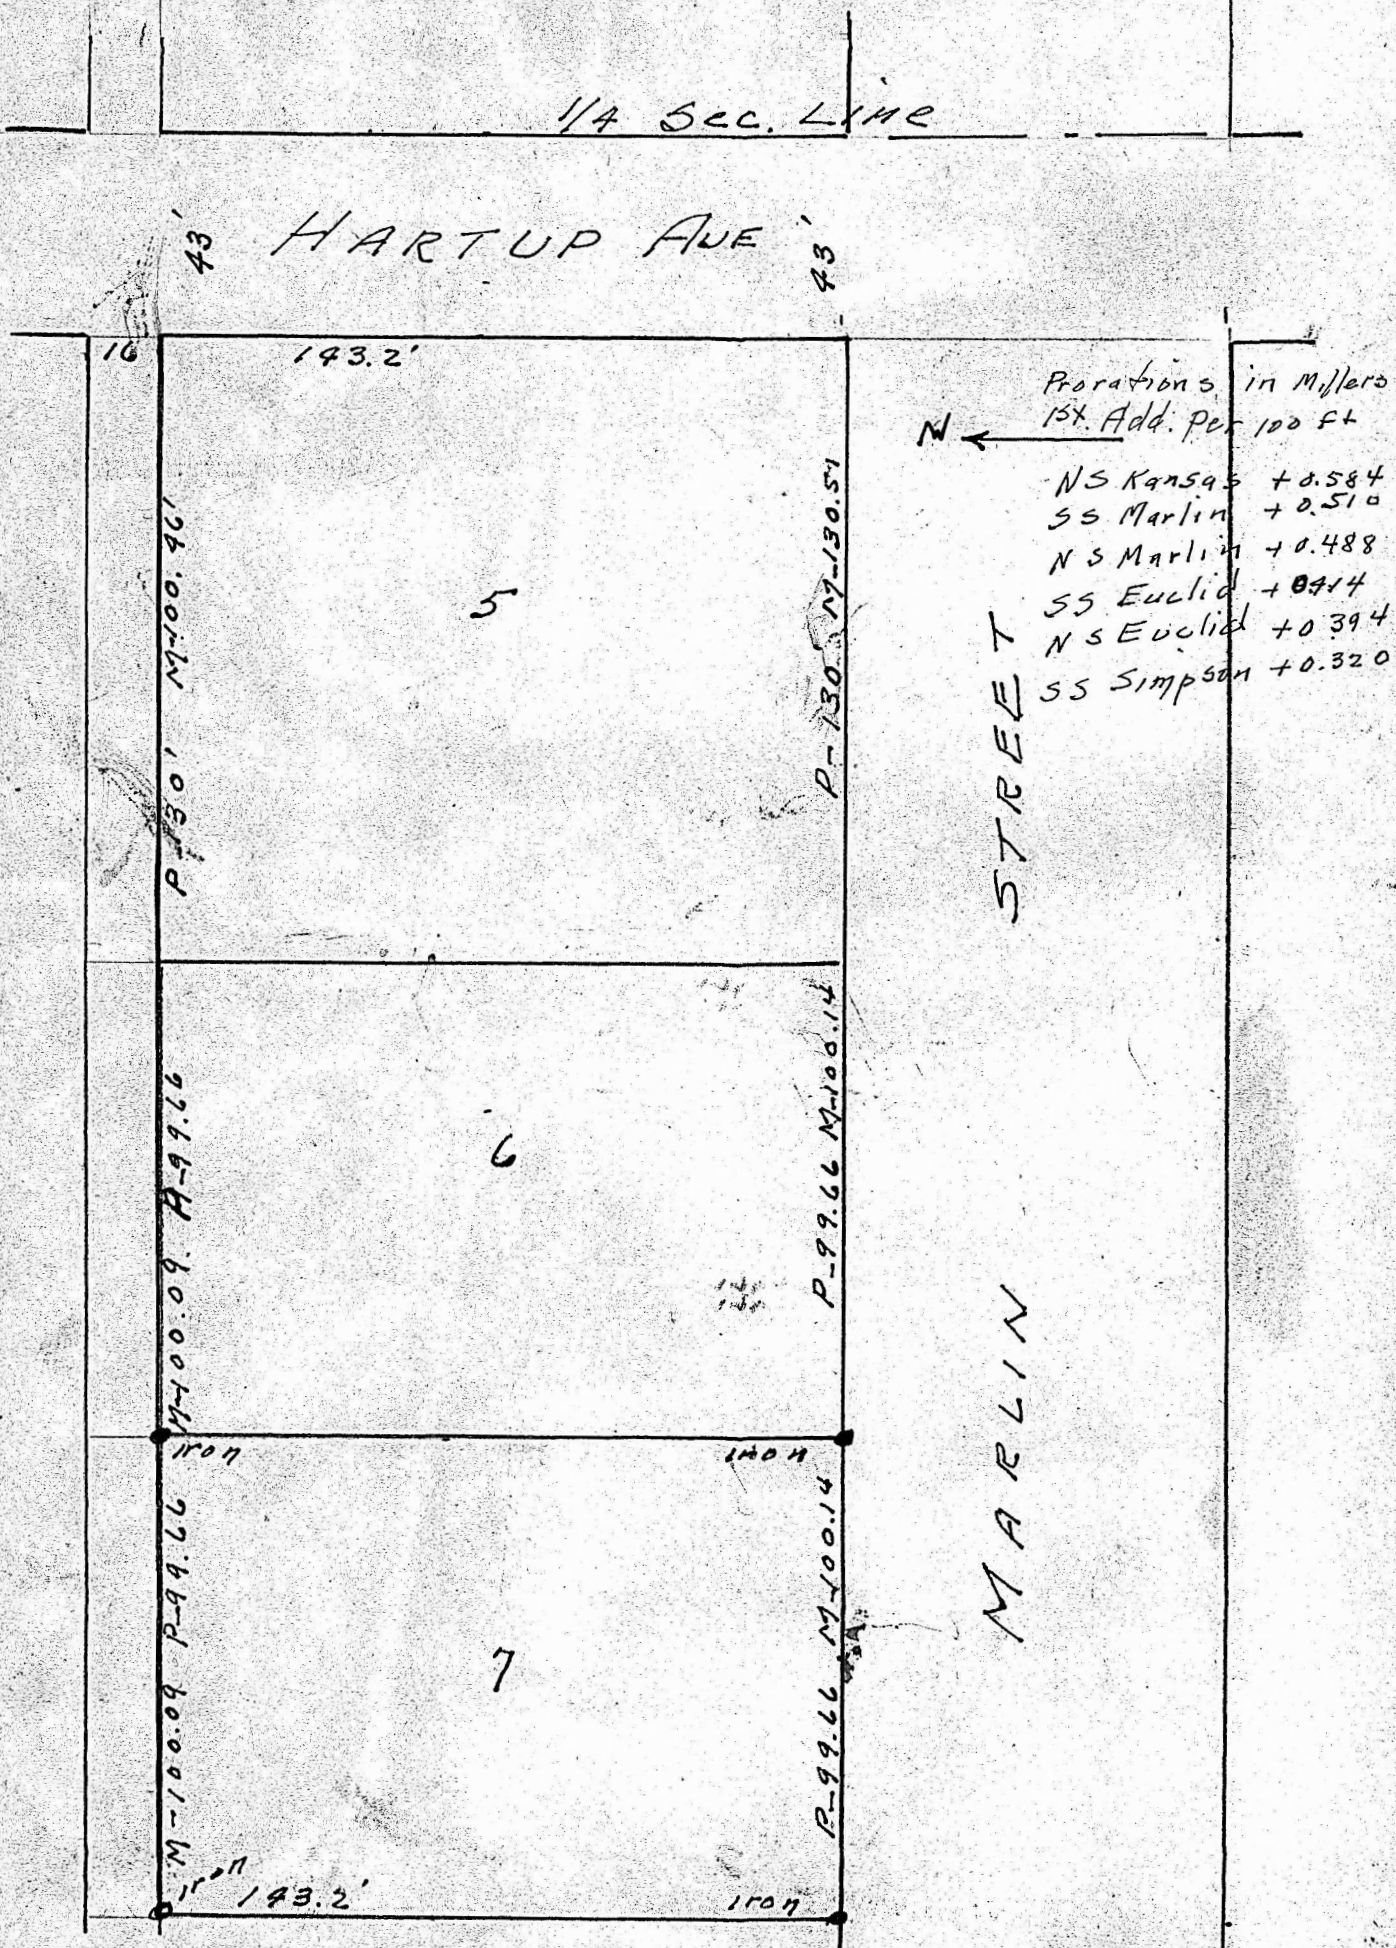 1/4 Sec. Line
43'
HARTUP AVE
43'
16
143.2'
Prorations in Millers
1st. Add. Per 100 ft
N
NS Kansas +0.584
SS Marlin +0.510
NS Marlin +0.488
SS Euclid +0414
NS Euclid +0.394
SS Simpson +0.320
P-130'
P-130' M-130.51
5
STREET
M-100.09 P-99.66
P-99.66 M-100.14
6
iron
iron
MARLIN
M-100.09 P-99.66
P-99.66 M-100.14
7
iron
143.2'
iron